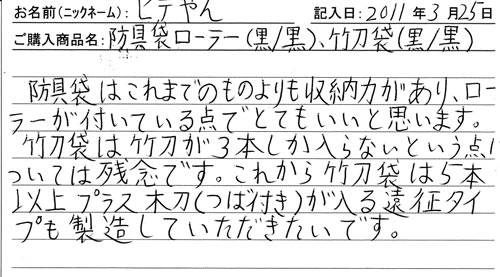 お名前(ニックネーム): ヒデやん 記入日: 2011年3月25日
ご購入商品名: 防具袋ローラー(黒/黒)、竹刀袋(黒/黒)
防具袋はこれまでのものよりも収納力があり、ロー
ラーが付いている点でとてもいいと思います。
竹刀袋は竹刀が3本しか入らないという点に
ついては残念です。これから竹刀袋は5本
以上プラス木刀(つば付き)が入る遠征タイ
プも製造していただきたいです。